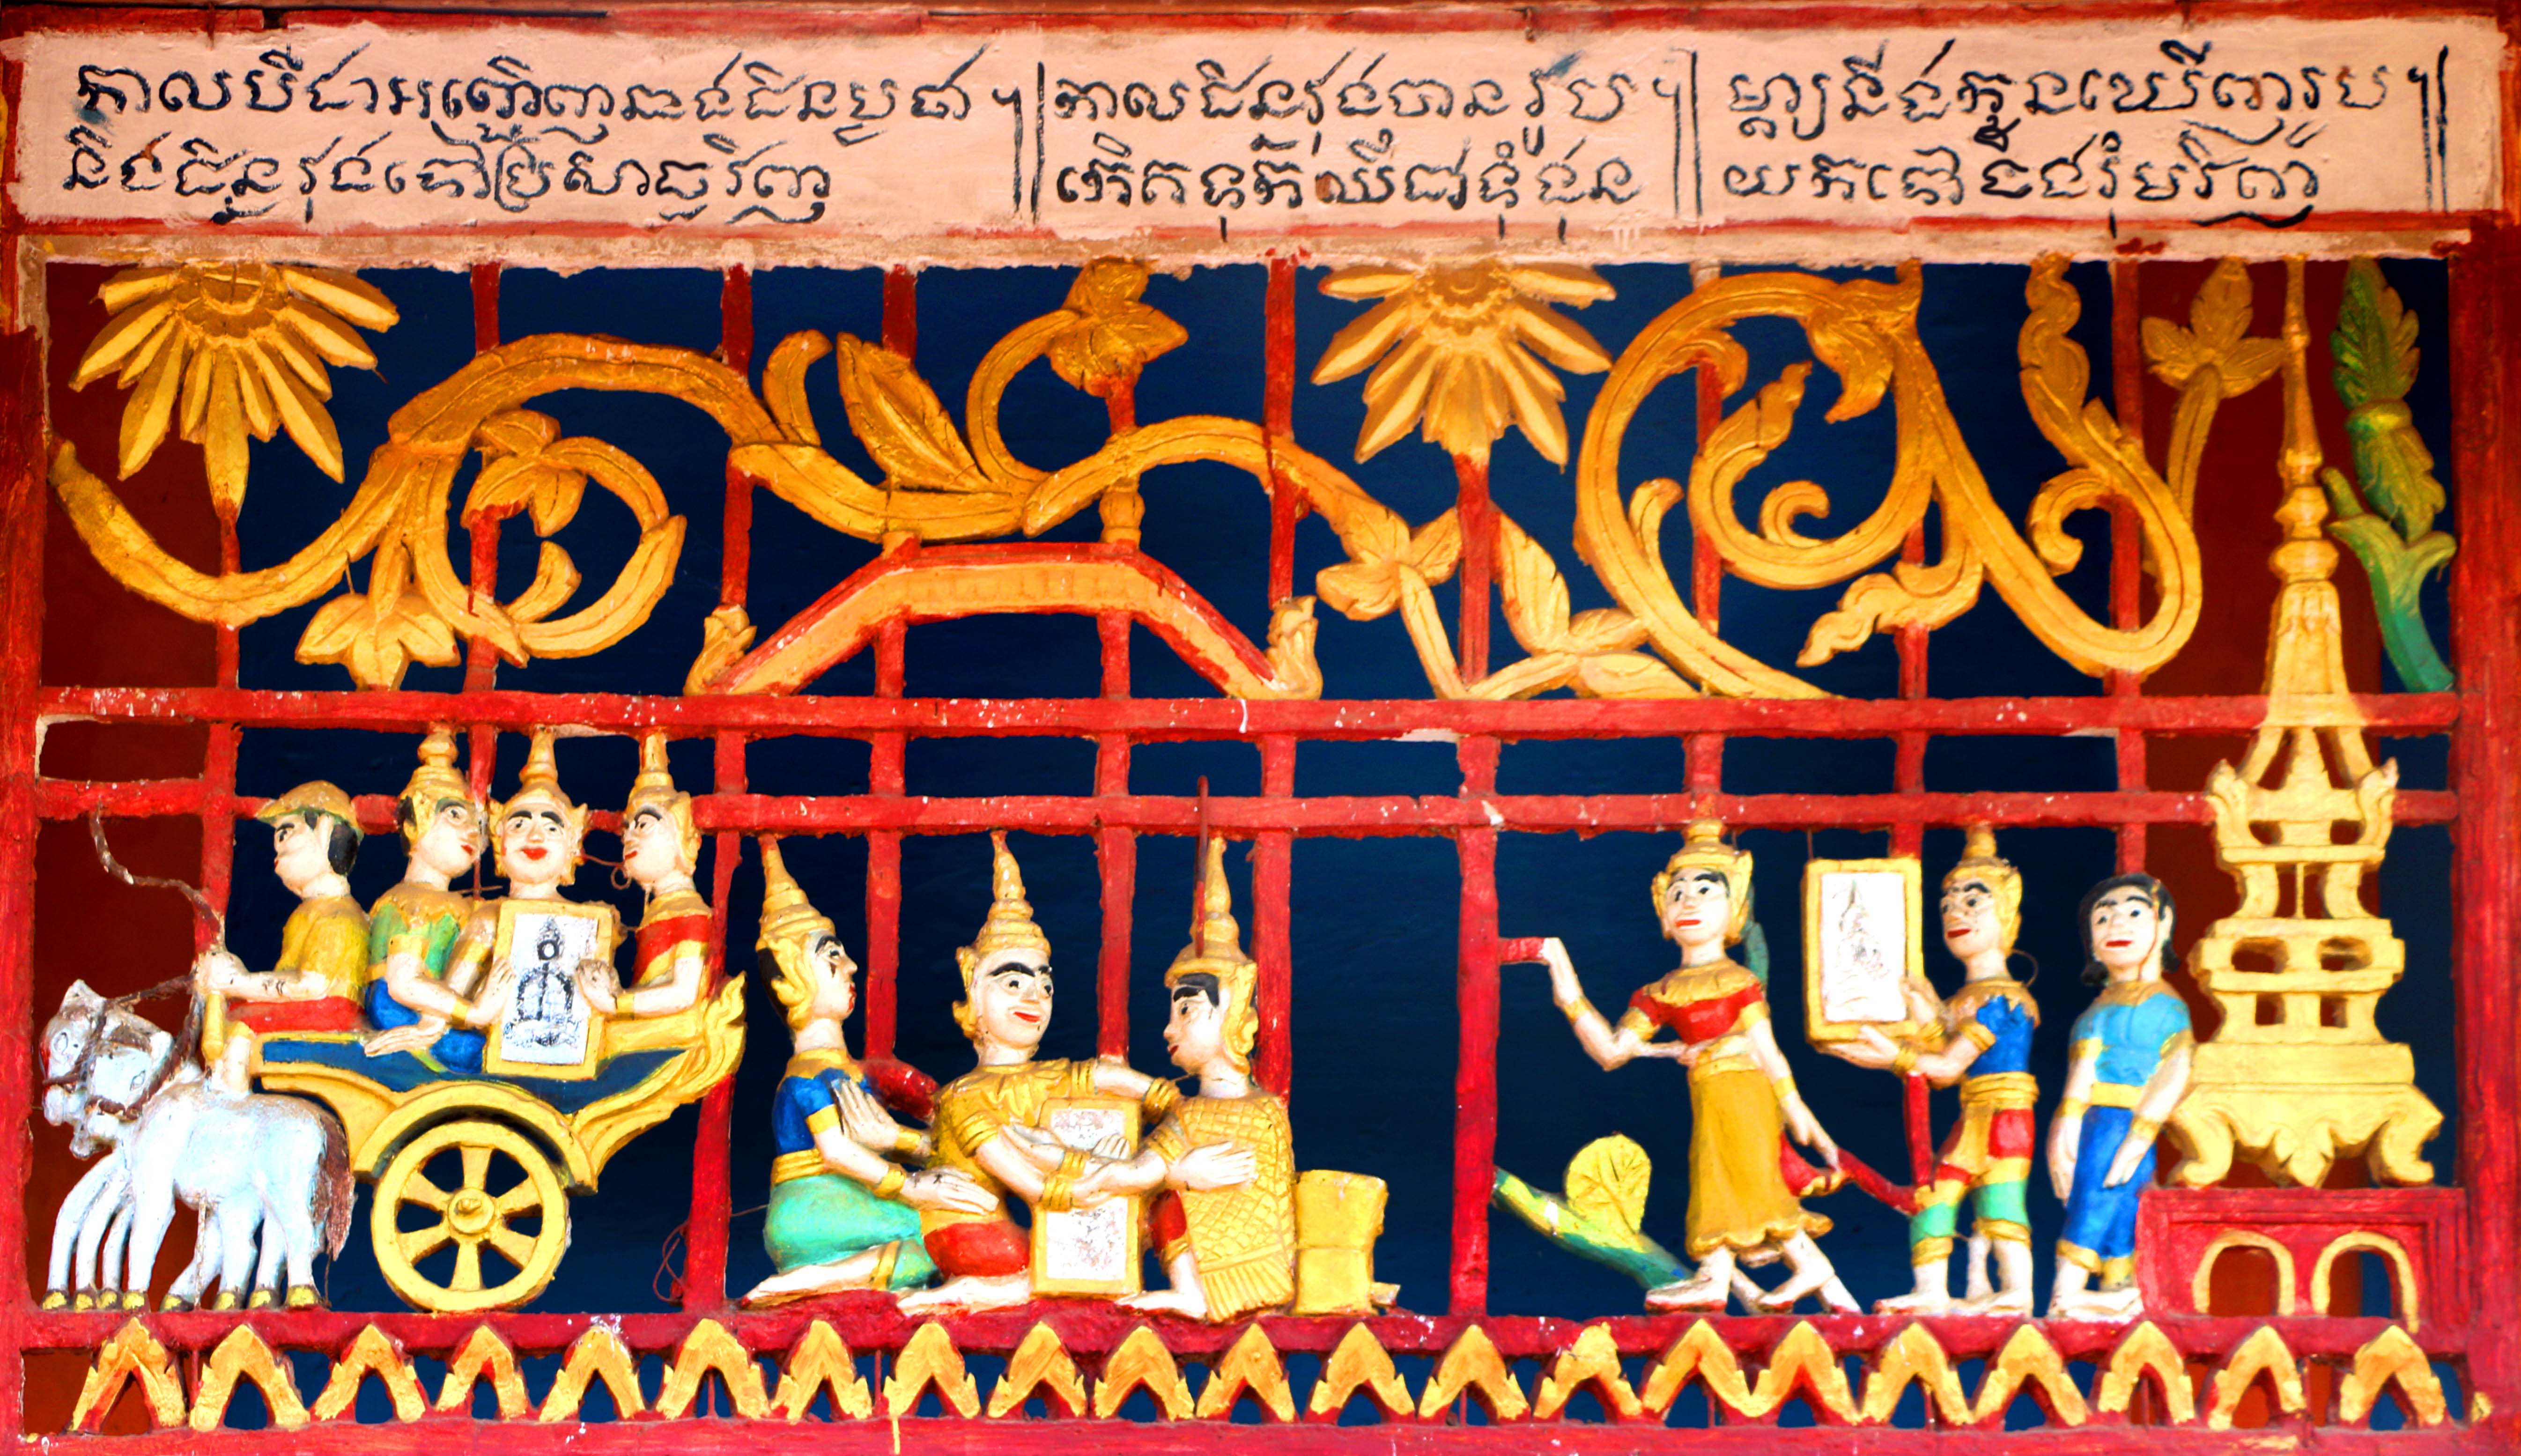 កាលបីជាអញ្ជើញនាងជិនបូជា ។
និងជិនវុងទៅប្រាសាទវិញ
កាលជិនវុងបានរូប ។
កើតទុក្ខឈឺជាទុំងន
ម្ដាយនឹងកូនឃើញរូប ។
យកទៅ វិញ